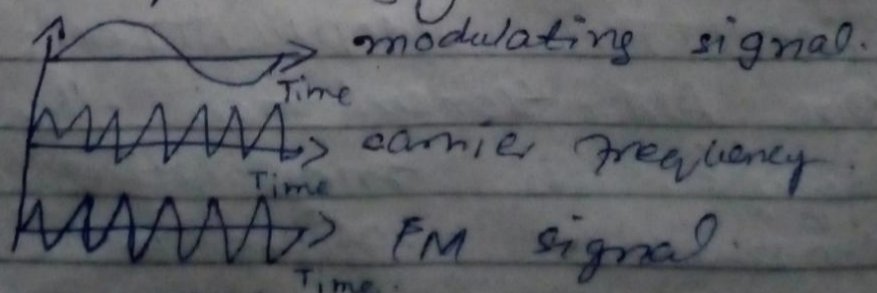 modulating signal.
Time
carrier frequency.
Time
FM signal.
Time.